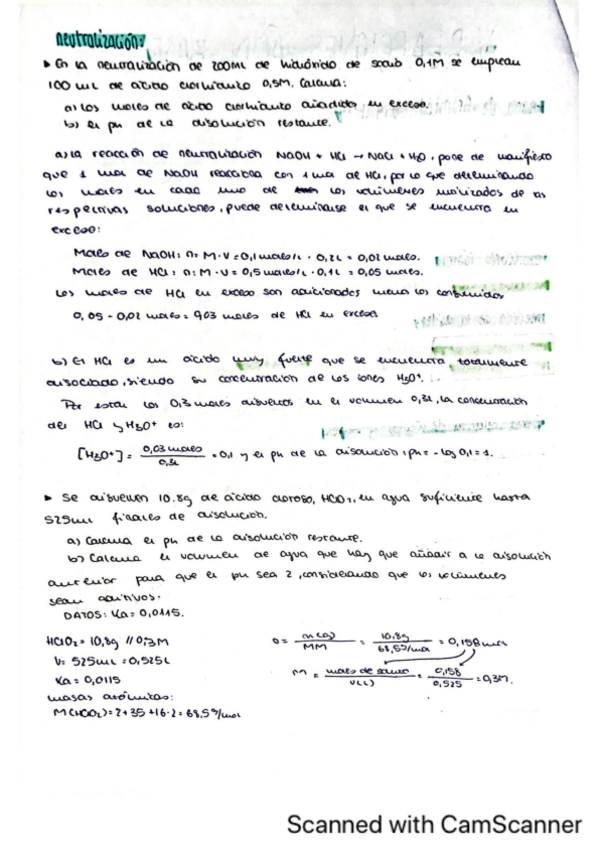 neutralización:
▸ En la neutralización de 200mL de hidróxido de sodio 0,1M se emplean
100 mL de ácido clorhídrico 0,5M. Calcula:
a) Los moles de ácido clorhídrico añadidos en exceso.
b) El pH de la disolución restante.
a) La reacción de neutralización NaOH + HCl → NaCl + H₂O, pone de manifiesto
que 1 mol de NaOH reacciona con 1 mol de HCl, por lo que determinando
los moles en cada uno de los volúmenes utilizados de as
respectivas soluciones, puede determinarse el que se encuentra en
exceso:
Moles de NaOH: n= M·V = 0,1 moles/L · 0,2L = 0,02 moles.
Moles de HCl: n: M·V = 0,5 moles/L · 0,1L = 0,05 moles.
Los moles de HCl en exceso son adicionados menos los consumidos
0,05 - 0,02 moles = 0,03 moles de HCl en exceso
b) El HCl es un ácido muy fuerte que se encuentra totalmente
disociado, siendo su concentración de los iones H₃O⁺.
Por estar los 0,3 moles disueltos en el volumen 0,3L, la concentración
del HCl y H₃O⁺ es:
[H₃O⁺] = 0,03 moles / 0,3L = 0,1 y el pH de la disolución: pH = -log 0,1 = 1.
▸ Se disuelven 10.8g de ácido cloroso, HClO₂, en agua suficiente hasta
525mL finales de disolución.
a) Calcula el pH de la disolución restante.
b) Calcula el volumen de agua que hay que añadir a la disolución
anterior para que el pH sea 2, considerando que los volúmenes
sean aditivos.
DATOS: Ka = 0,0115.
HClO₂ = 10,8g // 0,3M
V= 525mL = 0,525L
Ka = 0,0115
masas atómicas:
n = m(g) / MM = 10,8g / 68,5g/mol = 0,158 mol
M = moles de soluto / V(L) = 0,158 / 0,525 = 0,3M.
Scanned with CamScanner